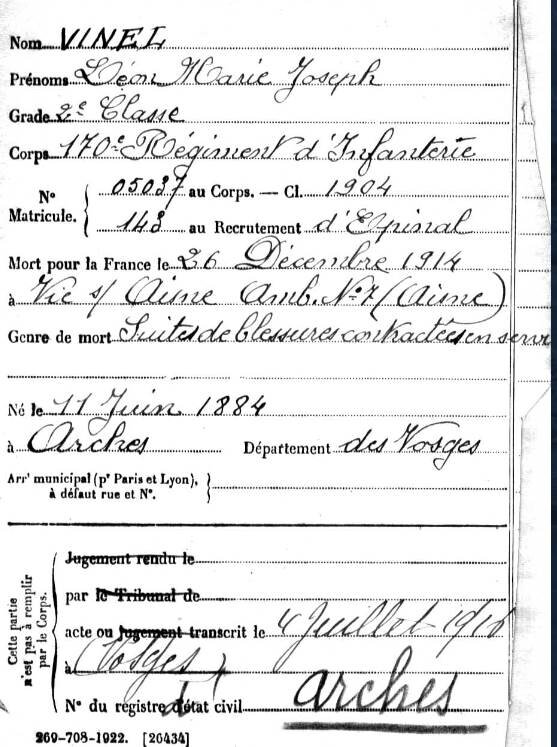 Nom VINEL
Prénoms Léon Marie Joseph
Grade 2e Classe
Corps 170e Régiment d'Infanterie
N° Matricule. { 05037 au Corps. — Cl. 1904
143 au Recrutement d'Epinal
Mort pour la France le 26 Décembre 1914
à Vic s/ Aisne Amb. N° 7 (Aisne)
Genre de mort Suites de blessures contractées en serv
Né le 11 Juin 1884
à Arches Département des Vosges
Arrt municipal (pr Paris et Lyon), }
à défaut rue et N°.
Cette partie
n'est pas à remplir
par le Corps.
Jugement rendu le
par le Tribunal de
acte ou jugement transcrit le 4 Juillet 1916
à (Vosges)
N° du registre d'état civil Arches
269-708-1922. [26434]